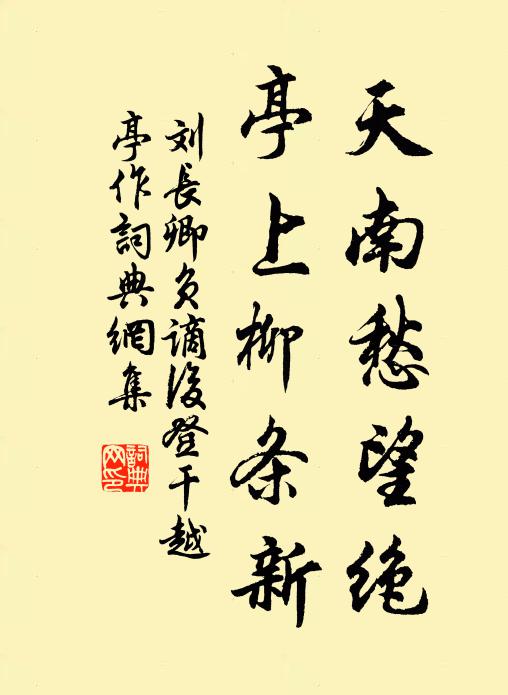 天南愁望绝
亭上柳条新
刘長卿负谪後登干越
亭作詞典網集
詞典
网印